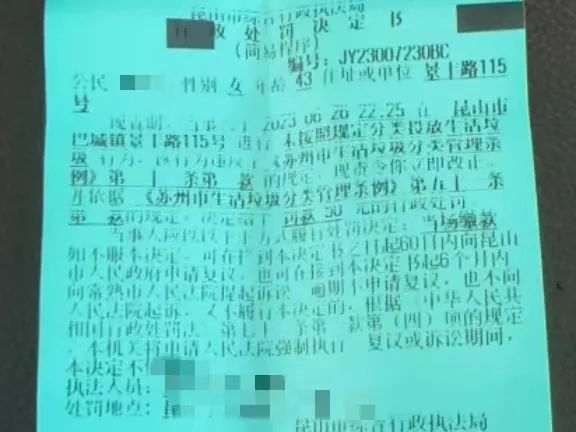 昆山市综合行政执法局
行政处罚决定书
(简易程序)
编号: JY23007230BC
公民 性别 女 年龄 43 住址或单位 景 路115
号
2023 06 26 22:25 在 昆山市
巴城镇景 路115号 进行 未按照规定分类投放生活垃
圾 行为,该行为违反了《苏州市生活垃圾分类管理条
例》第 条第 款 的规定,现责令你立即改正。
并依据 《苏州市生活垃圾分类管理条例》第五 条
第 款 的规定,决定 罚款 50 元的行政处罚
当事人应 以下 方式履行处罚决定:当场缴款
如不服本决定,可在接到本决定书之日起60日内向昆山
市人民政府申请复议,也可在接到本决定书起6个月内
向常熟市人民法院提起诉讼 逾期不申请复议,也不向
人民法院起诉,又不履行本决定的,根据 中华人民共
和国行政处罚法 第七 条第 款第(四)项的规定
,本机关将申请人民法院强制执行 复议或诉讼期间,
本决定不
执法人员:
处罚地点:昆
昆山市综合行政执法局